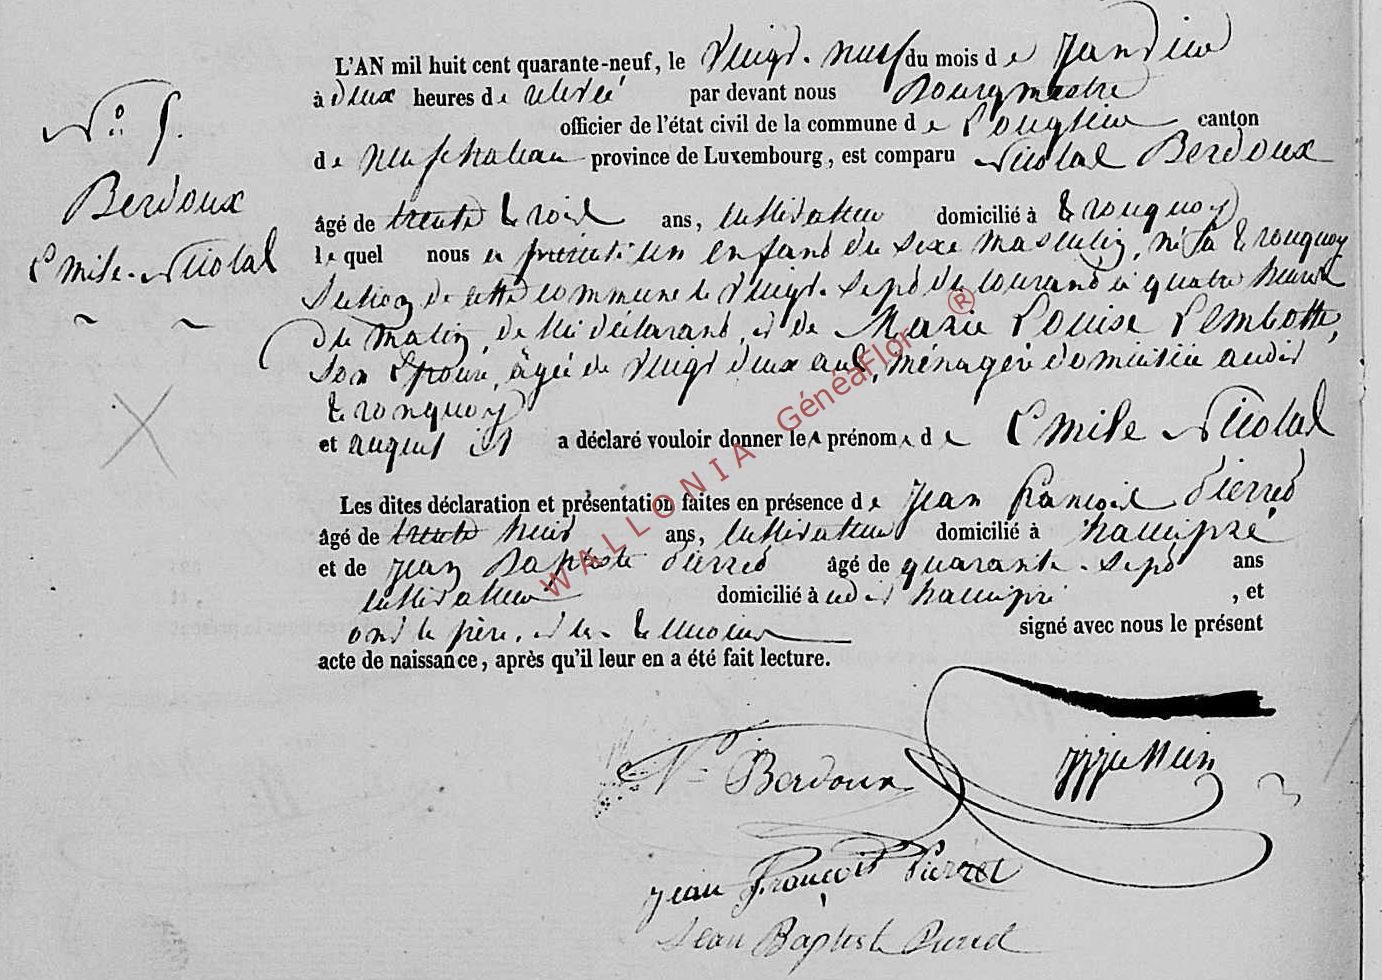 L'AN mil huit cent quarante-neuf, le vingt-neuf du mois de Janvier
à deux heures de relevée par devant nous Bourgmestre
officier de l'état civil de la commune de Longlier canton
de neufchateau province de Luxembourg, est comparu Nicolas Berdoux
N° 5.
Berdoux
Emile-Nicolas
âgé de trente trois ans, cultivateur domicilié à tronquoy
lequel nous a présenté un enfant du sexe masculin, né à tronquoy
section de cette commune le vingt-sept du courant à quatre heures
du matin, de lui déclarant, et de Marie Louise Lembotte,
son épouse, âgée de vingt deux ans, ménagère domiciliée audit
tronquoy
et auquel il a déclaré vouloir donner les prénoms de Emile Nicolas
Les dites déclaration et présentation faites en présence de Jean françois Pierret
âgé de trente huit ans, cultivateur domicilié à hamipré
et de Jean Baptiste Pierret âgé de quarante-sept ans
cultivateur domicilié à udit hamipré, et
ont le père, et les témoins signé avec nous le présent
acte de naissance, après qu'il leur en a été fait lecture.
WALLONIA GénéaFlor ®
N Berdoux
Jean François Pierret
Jean Baptiste Pierret